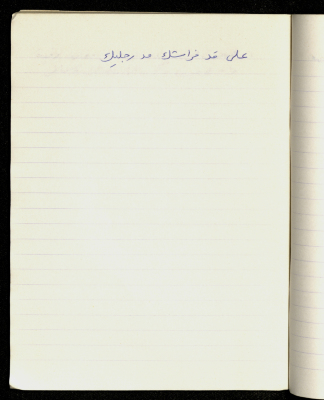 على قد فراشتك مد رجليك